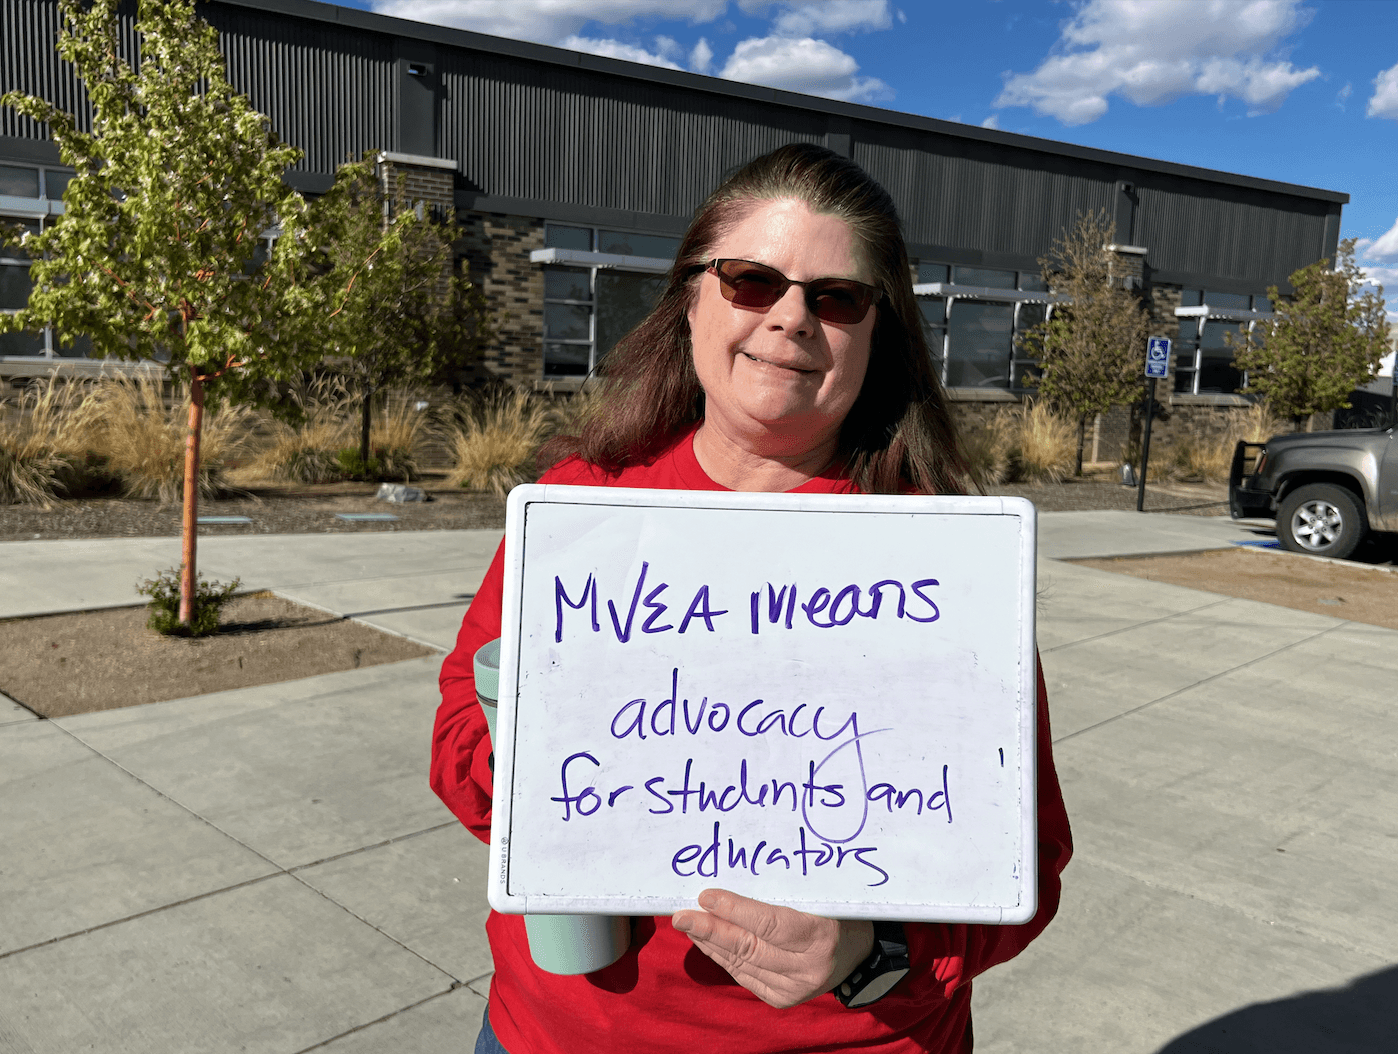 MVEA Means
advocacy
for students and
educators
U BRANDS